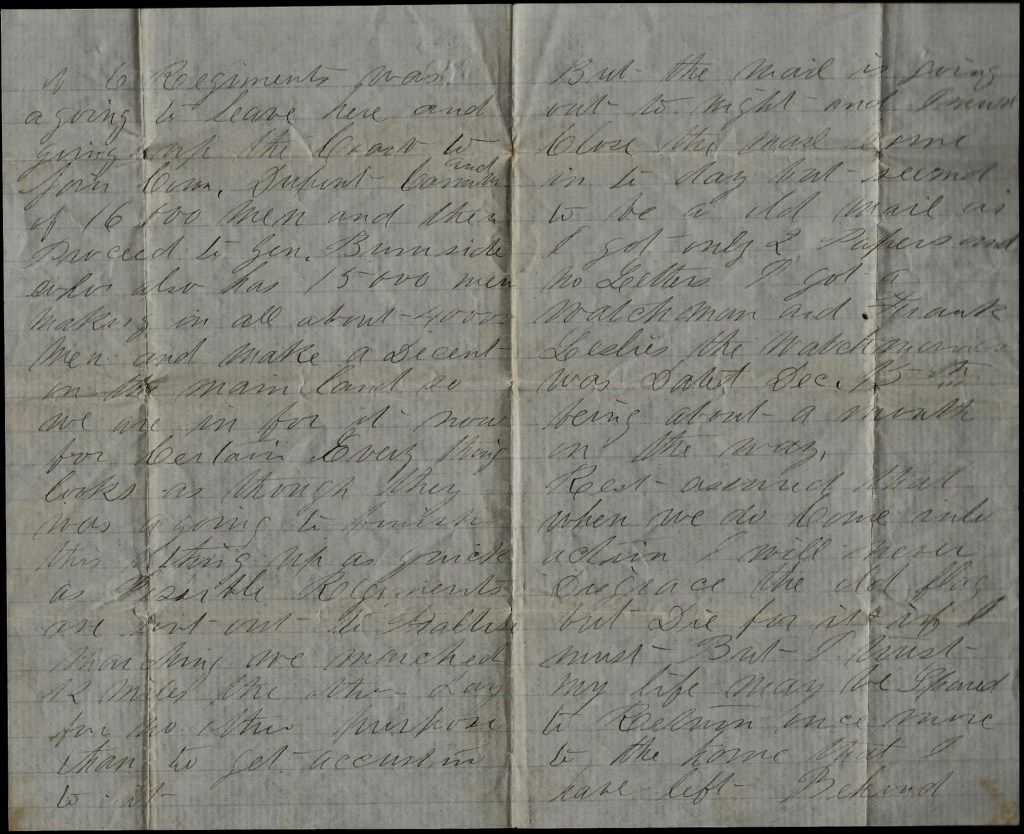 of 6 Regiments was
agoing to leave here and
going up the Coast to
join Com. Dupont Command
of 16 000 men and then
Proceed to Gen. Burnside
who also has 15000 men
making in all about 40000
men and make a Decent
on the main land so
we are in for it now
for Certain Every thing
looks as though they
was agoing to finish
this thing up as quick
as Possible Regiments
are sent out to Practise
marching we marched
12 miles the other day
for no other purpose
than to get accustom
to it
But the mail is going
out to night and I must
Close the mail Come
in to day but seemed
to be a old mail as
I got only 2 Papers and
no Letters I got a
Watchman and Frank
Leslies the Watchman
was Dated Dec. 15th
being about a month
on the way.
Rest assured that
when we do Come into
action I will never
Disgrace the old flag
but Die for it if I
must But I trust
my life may be Spared
to Return once more
to the home that I
have left Behind